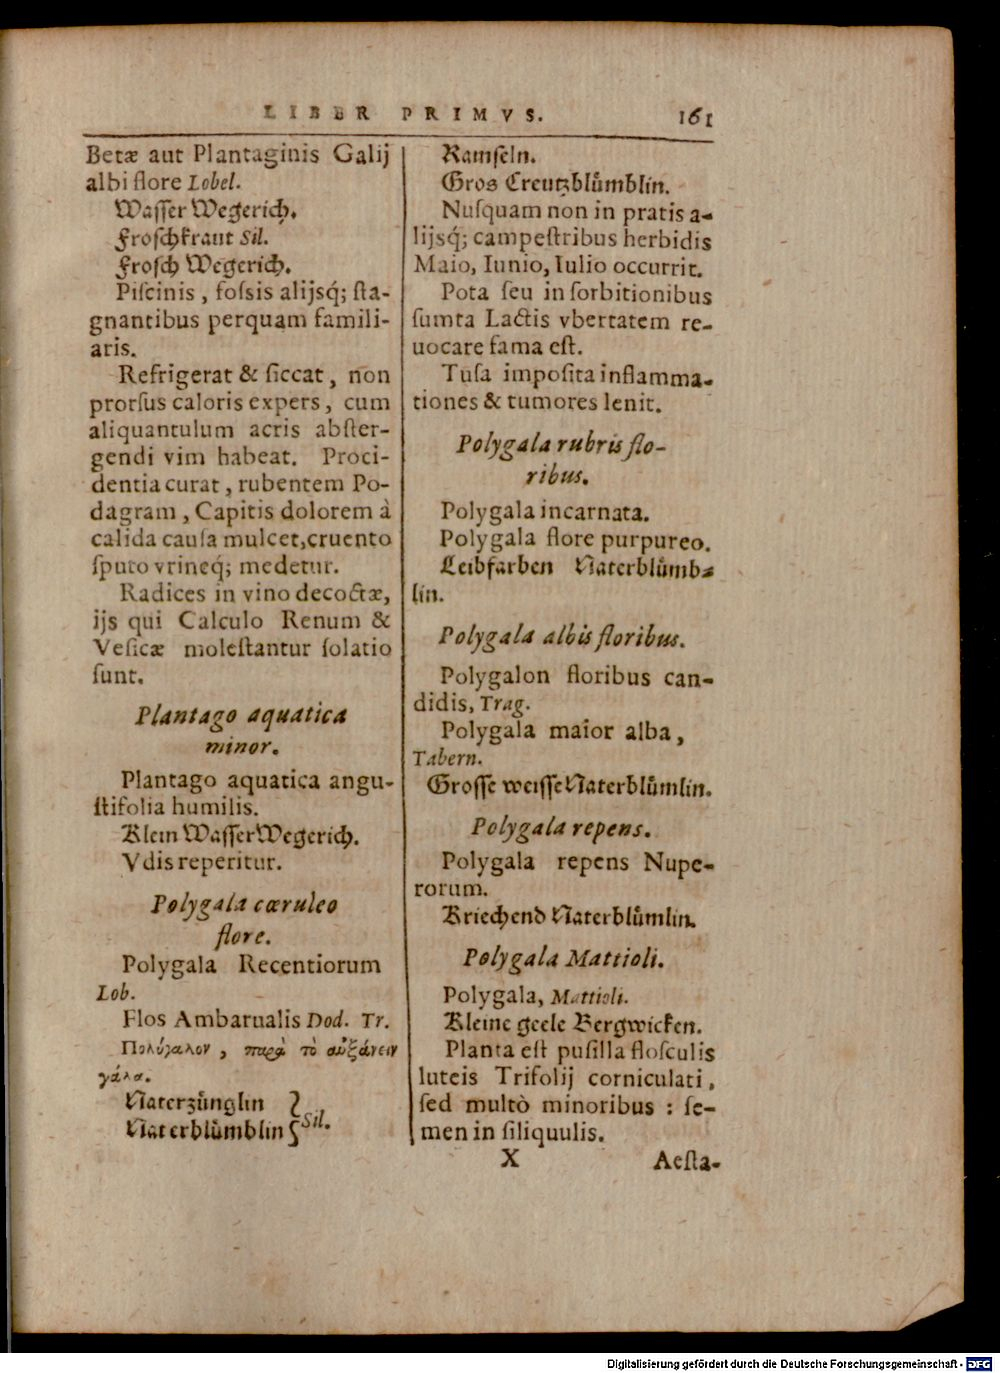 LIBER PRIMVS. 161
Betæ aut Plantaginis Galij
albi flore Lobel.
Waſſer Wegerich.
Froſchkraut Sil.
Froſch Wegerich.
Piſcinis, foſsis alijsq́; ſta-
gnantibus perquam famili-
aris.
Refrigerat & ſiccat, non
prorſus caloris expers, cum
aliquantulum acris abſter-
gendi vim habeat. Proci-
dentia curat, rubentem Po-
dagram, Capitis dolorem à
calida cauſa mulcet, cruento
ſputo vrineq́; medetur.
Radices in vino decoctæ,
ijs qui Calculo Renum &
Veſicæ moleſtantur ſolatio
ſunt.
Plantago aquatica
minor.
Plantago aquatica angu-
ſtifolia humilis.
Klein Waſſer Wegerich.
Vdis reperitur.
Polygala cœruleo
flore.
Polygala Recentiorum
Lob.
Flos Ambarualis Dod. Tr.
Πολύγαλον, παρὰ τὸ αὐξάνειν
γάλα.
Naterzůnglin
Naterblůmblin } Sil.
Ramſeln.
Gros Creutzblůmblin.
Nuſquam non in pratis a-
lijsq́; campeſtribus herbidis
Maio, Iunio, Iulio occurrit.
Pota ſeu in ſorbitionibus
ſumta Lactis vbertatem re-
uocare fama eſt.
Tuſa impoſita inflamma-
tiones & tumores lenit.
Polygala rubris flo-
ribus.
Polygala incarnata.
Polygala flore purpureo.
Leibfarben Naterblůmb-
lin.
Polygala albis floribus.
Polygalon floribus can-
didis, Trag.
Polygala maior alba,
Tabern.
Groſſe weiſſe Naterblůmlin.
Polygala repens.
Polygala repens Nupe-
rorum.
Kriechend Naterblůmlin.
Polygala Mattioli.
Polygala, Mattioli.
Kleine geele Bergwicken.
Planta eſt puſilla floſculis
luteis Trifolij corniculati,
ſed multò minoribus : ſe-
men in ſiliquulis.
X Aeſta-
Digitalisierung gefördert durch die Deutsche Forschungsgemeinschaft - DFG